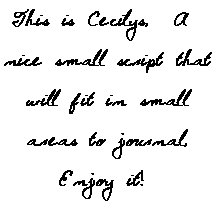 This is Cecilys. A
nice small script that
will fit in small
areas to journal.
Enjoy it!